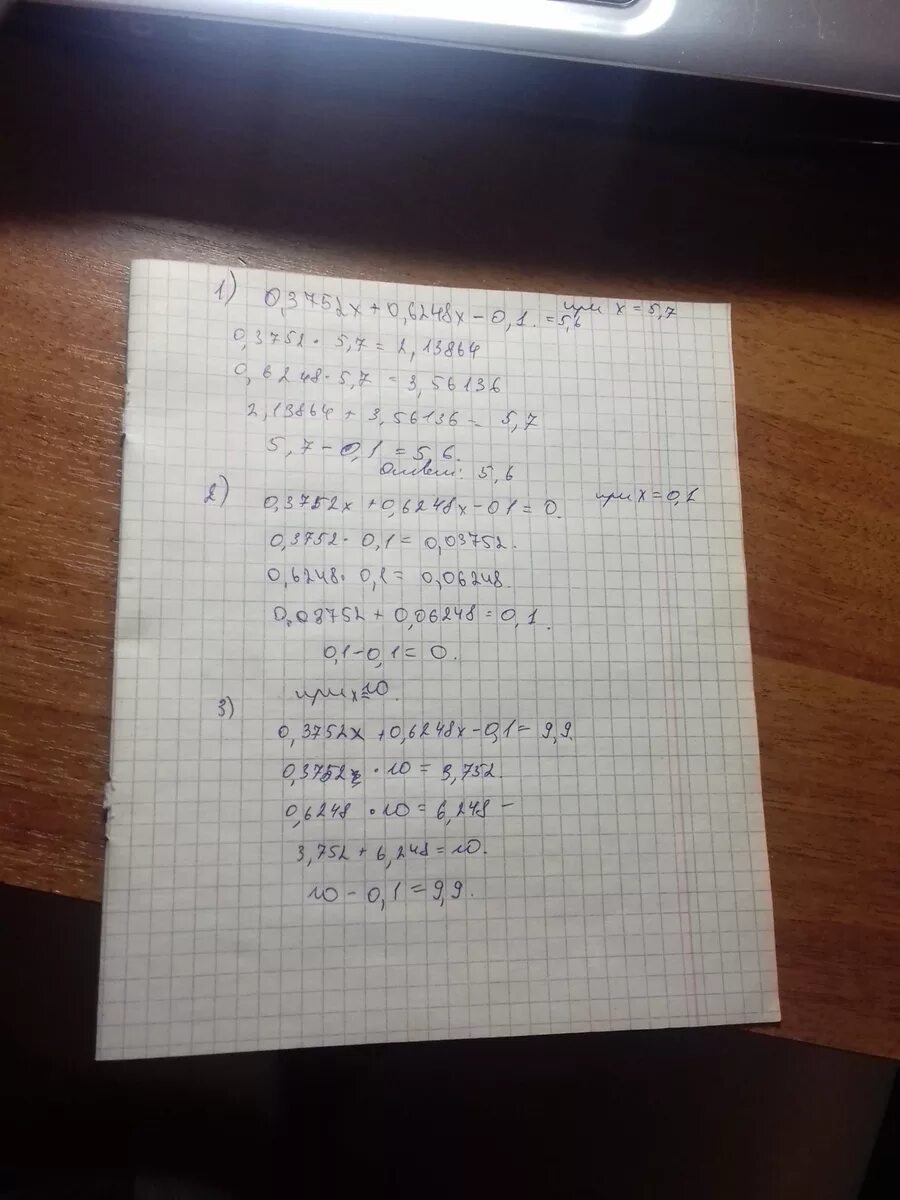 1) 0,3752x + 0,6248x - 0,1. = 5,6 при x = 5,7
0,3752 · 5,7 = 2,13864
0,6248 · 5,7 = 3,56136
2,13864 + 3,56136 = 5,7
5,7 - 0,1 = 5,6.
Ответ: 5,6
2) 0,3752x + 0,6248x - 0 1 = 0. при x = 0,1
0,3752 · 0,1 = 0,03752.
0,6248 · 0,1 = 0,06248.
0,03752 + 0,06248 = 0,1.
0,1 - 0,1 = 0.
3) при x = 10.
0,3752x + 0,6248x - 0,1 = 9,9.
0,3752 · 10 = 3,752.
0,6248 · 10 = 6,248 -
3,752 + 6,248 = 10.
10 - 0,1 = 9,9.